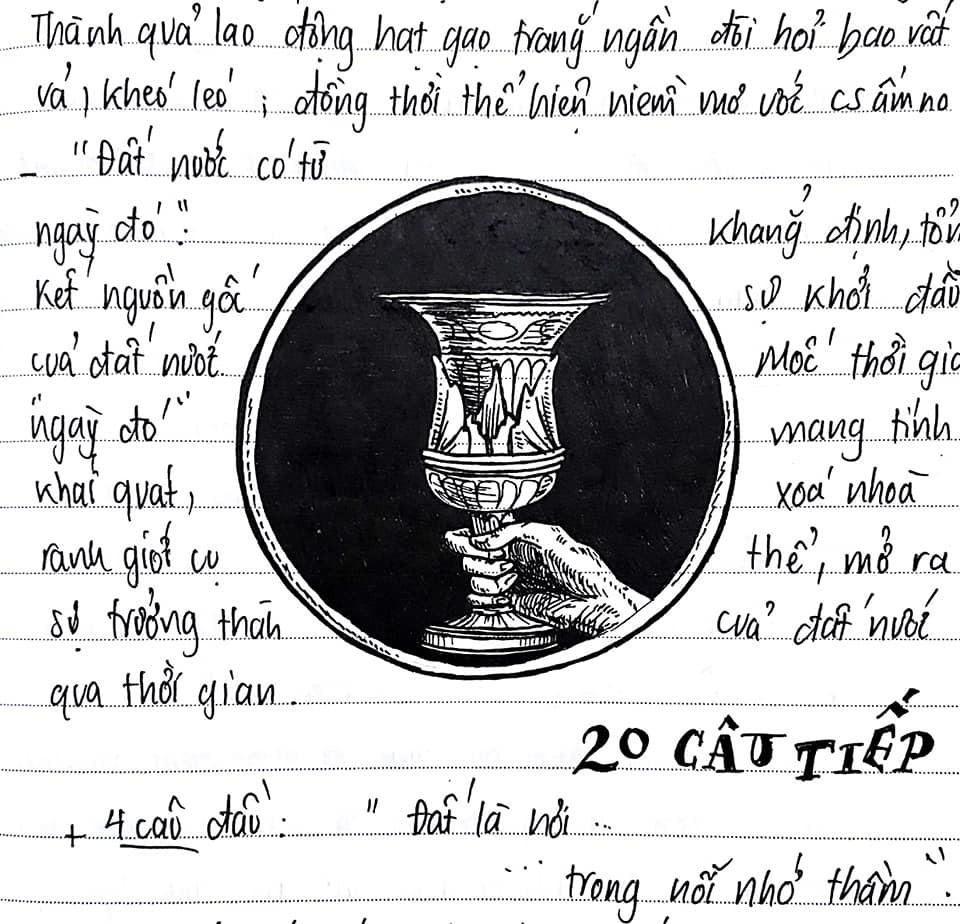 Thành quả lao động hạt gạo trắng ngần đòi hỏi bao vất
vả, khéo léo ; đồng thời thể hiện niềm mơ ước cs ấm no
- "Đất nước có từ
ngày đó": khẳng định, tổng
kết nguồn gốc sự khởi đầu
của đất nước Mốc thời gia
"ngày đó" mang tính
khái quát, xoá nhoà
ranh giới cụ thể, mở ra
sự trưởng thàn của đất nước
qua thời gian.
20 CÂU TIẾP
+ 4 câu đầu: "Đất là nơi ...
... trong nỗi nhớ thầm".